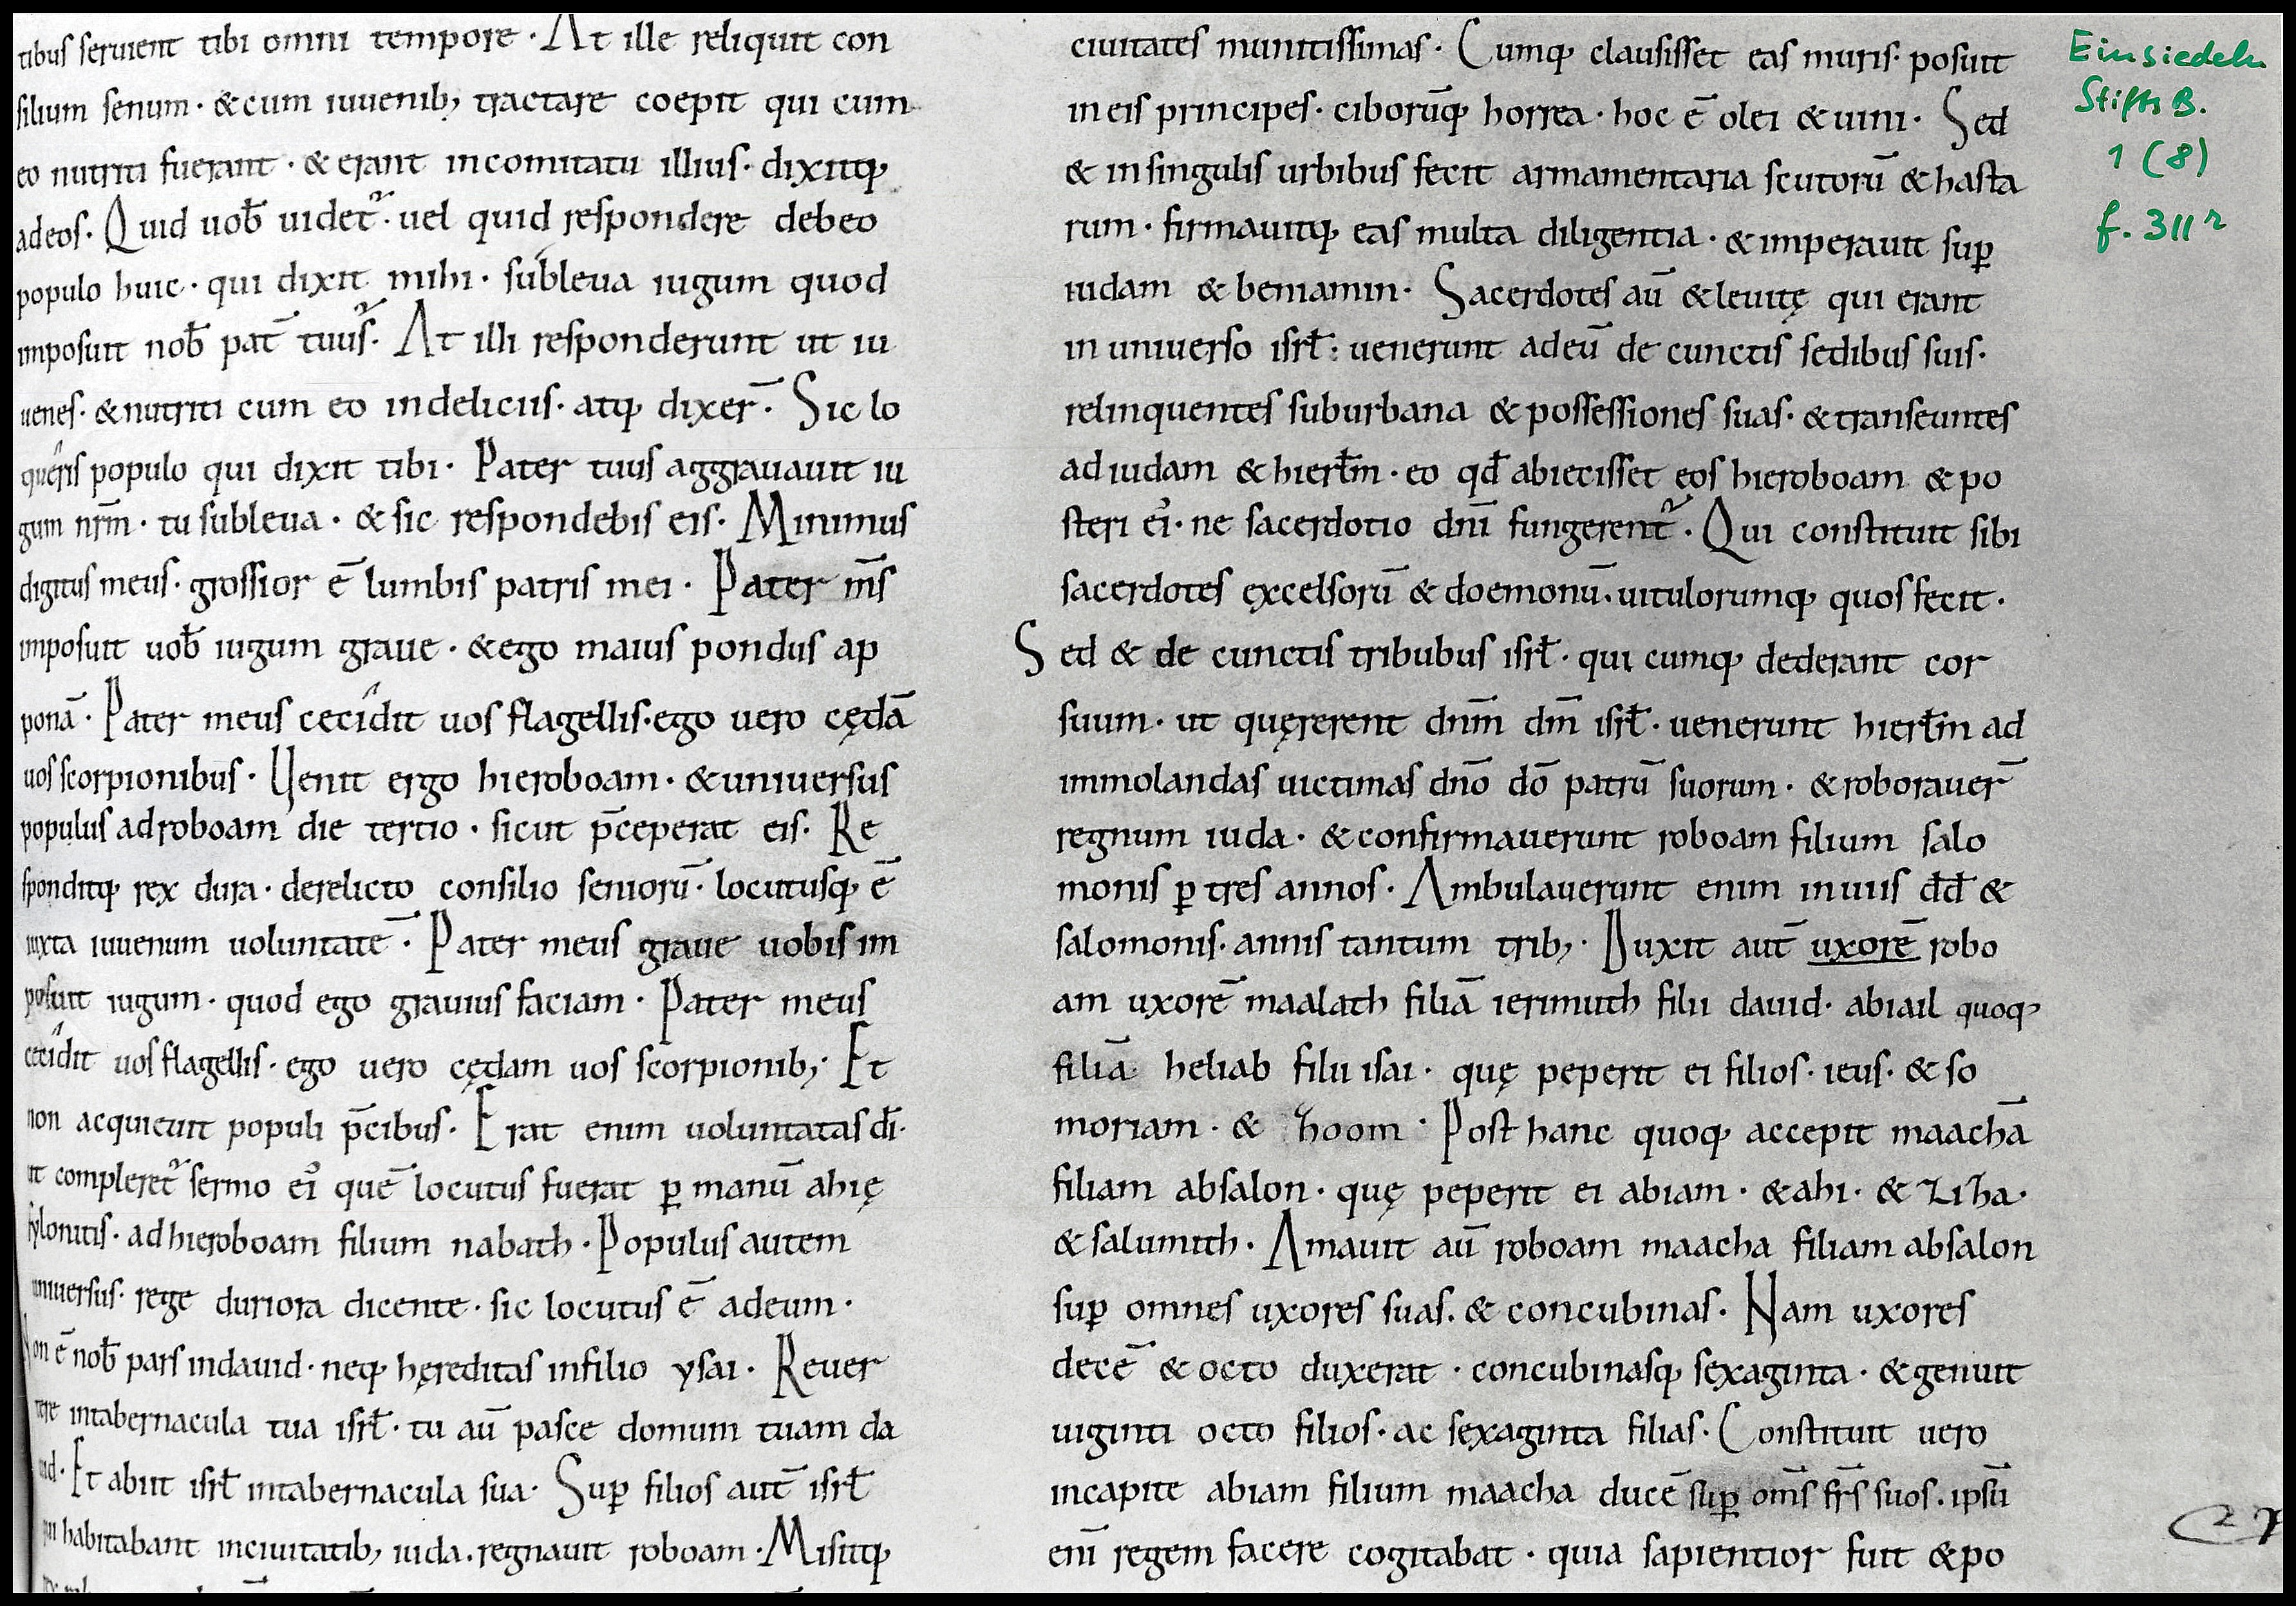 tibus seruient tibi omni tempore · At ille reliquit con
silium senum · & cum iuuenib; tractare coepit qui cum
eo nutriti fuerant · & erant in comitatu illius · dixitq;
ad eos · Quid uob̄ uidet᷑ · uel quid respondere debeo
populo huic · qui dixit mihi · subleua iugum quod
imposuit nob̄ pat̄ tuus · At illi responderunt ut iu
uenes · & nutriti cum eo in deliciis · atq; dixer̄ · Sic lo
queris populo qui dixit tibi · Pater tuus aggrauauit iu
gum nr̄m · tu subleua · & sic respondebis eis · Minimus
digitus meus · grossior ē lumbis patris mei · Pater m̄s
imposuit uob̄ iugum graue · & ego maius pondus ap
ponā · Pater meus cecidit uos flagellis · ego uero cędā
uos scorpionibus · Uenit ergo hieroboam · & uniuersus
populus ad roboam die tertio · sicut p̄ceperat eis · Re
sponditq; rex dura · derelicto consilio seniorū · locutusq; ē
iuxta iuuenum uoluntatē · Pater meus graue uobis im
posuit iugum · quod ego grauius faciam · Pater meus
cecidit uos flagellis · ego uero cędam uos scorpionib; Et
non acquieuit populi p̄cibus · Erat enim uoluntatas dī ·
ut compleret᷑ sermo ei᷒ quē locutus fuerat ꝑ manū ahię
sylonitis · ad hieroboam filium nabath · Populus autem
uniuersus · rege duriora dicente · sic locutus ē ad eum ·
Non ē nob̄ pars in dauid · neq; hęreditas in filio ysai · Reuer
tere in tabernacula tua isrł · tu aū pasce domum tuam da
uid · Et abiit isrł in tabernacula sua · Suꝑ filios aut̄ isrł
qui habitabant in ciuitatib; iuda · regnauit roboam · Misitq;
ciuitates munitissimas · Cumq; clausisset eas muris · posuit
in eis principes · ciborūq; horrea · hoc ē olei & uini · Sed
& in singulis urbibus fecit armamentaria scutorū & hasta
rum · firmauitq; eas multa diligentia · & imperauit suꝑ
iudam & beniamin · Sacerdotes aū & leuitę qui erant
in uniuerso isrł : uenerunt ad eū de cunctis sedibus suis ·
relinquentes suburbana & possessiones suas · & transeuntes
ad iudam & hierłm · eo qd̄ abiecisset eos hieroboam & po
steri ei᷒ · ne sacerdotio dn̄i fungerent᷑ · Qui constituit sibi
sacerdotes excelsorū & doemonū · uitulorumq; quos fecit ·
Sed & de cunctis tribubus isrł · qui cumq; dederant cor
suum · ut quęrerent dn̄m dm̄ isrł · uenerunt hierłm ad
immolandas uictimas dn̄o dō patrū suorum · & roborauer̄
regnum iuda · & confirmauerunt roboam filium salo
monis ꝑ tres annos · Ambulauerunt enim in uiis dd̄ &
salomonis · annis tantum trib; · Duxit aut̄ uxorē robo
am uxorē maalath filiā ierimuth filii dauid · abiail quoq;
filiā heliab filii isai · quę peperit ei filios · ieus · & so
moriam · & hoom · Post hanc quoq; accepit maachā
filiam absalon · quę peperit ei abiam · & ahi · & ziha ·
& salumith · Amauit aū roboam maacha filiam absalon
suꝑ omnes uxores suas · & concubinas · Nam uxores
decē & octo duxerat · concubinasq; sexaginta · & genuit
uiginti octo filios · ac sexaginta filias · Constituit uero
in capite abiam filium maacha ducē suꝑ om̄s fr̄s suos · ipsū
eni̅ regem facere cogitabat · quia sapientior fuit & po
Einsiedeln
Stifts B.
1 (8)
f. 311r